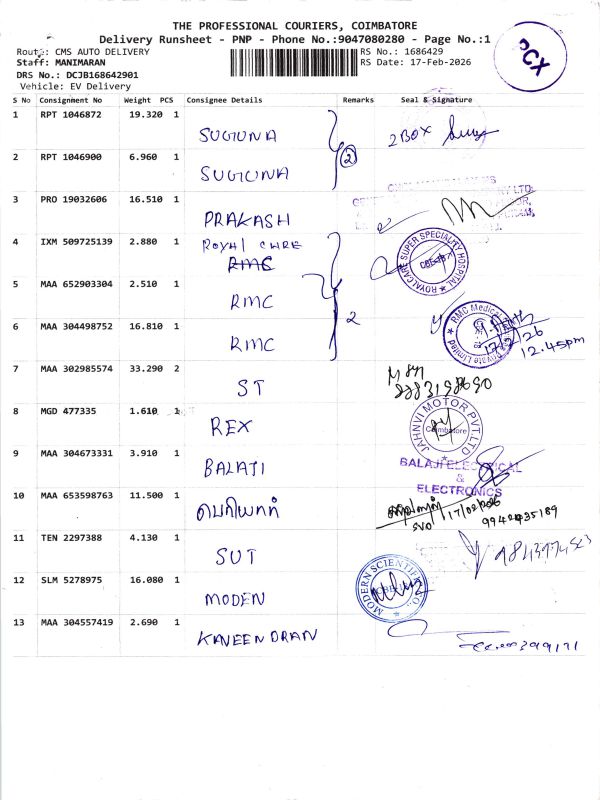 THE PROFESSIONAL COURIERS, COIMBATORE
Delivery Runsheet - PNP - Phone No.:9047080280 - Page No.:1
PCX
Route: CMS AUTO DELIVERY
RS No.: 1686429
Staff: MANIMARAN
RS Date: 17-Feb-2026
DRS No.: DCJB168642901
Vehicle: EV Delivery
S No Consignment No Weight PCS Consignee Details Remarks Seal & Signature
1 RPT 1046872 19.320 1
SUGUNA
2 BOX
2 RPT 1046900 6.960 1
2
SUGUNA
3 PRO 19032606 16.510 1
PRAKASH
4 IXM 509725139 2.880 1 ROYAL CARE
RMC
ROYAL CARE SUPER SPECIALITY HOSPITAL
5 MAA 652903304 2.510 1
RMC
2
6 MAA 304498752 16.810 1
RMC
RMC Medical
Private Limited
17/2/26
12.45pm
7 MAA 302985574 33.290 2
ST
8 MGD 477335 1.610 1
REX
JAHNVI MOTOR PVT LTD
Coimbatore
9 MAA 304673331 3.910 1
BALAJI
BALAJI ELECTRICAL
&
ELECTRONICS
10 MAA 653598763 11.500 1
17/02/2026
11 TEN 2297388 4.130 1
SUT
12 SLM 5278975 16.080 1
MODEN
MODERN SCIENTIFIC
13 MAA 304557419 2.690 1